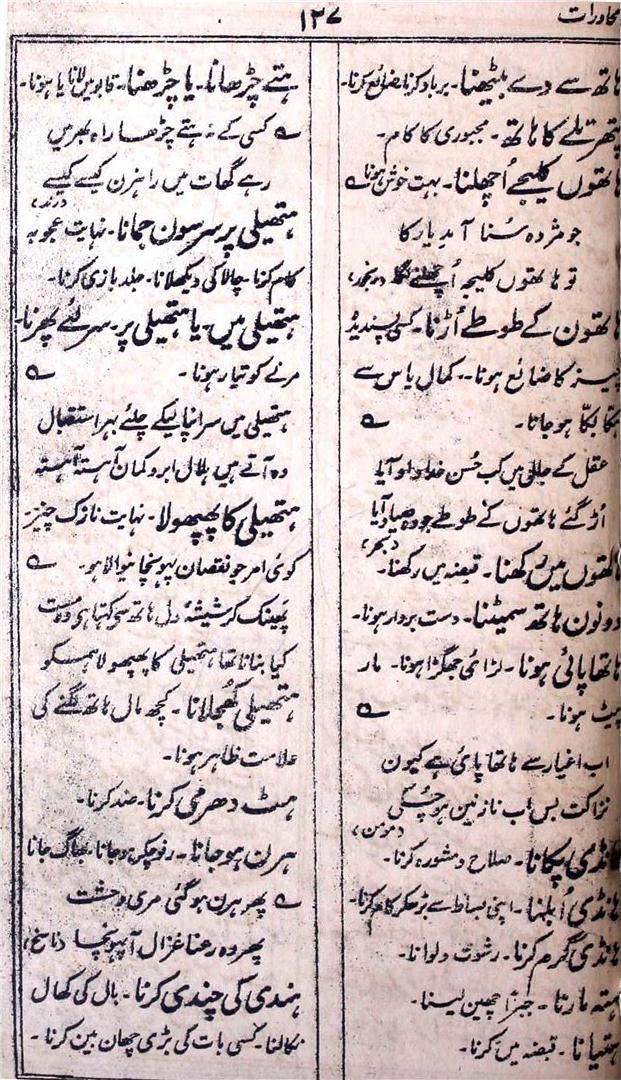 محاورات
۱۳۷
ہاتھ سے دے بیٹھنا۔ برباد کرنا۔ ضائع کرنا۔
پتھر تلے کا ہاتھ۔ مجبوری کا کام۔
ہاتھوں کلیجے اُچھلنا۔ بہت خوش ہونا ؎
جو مژدہ سُنا آمدِ یار کا
تو ہاتھوں کلیجہ اُچھلنے لگا
ہاتھوں کے طوطے اُڑنا۔ کسی پسندیدہ
چیز کا ضائع ہونا۔ کمال یاس سے
ہکا بکّا ہو جانا۔ ؎
عقل کے جال میں کب حُسن خداداد آیا
اُڑ گئے ہاتھوں کے طوطے جو وہ صیاد آیا
(بحر)
ہاتھوں میں رکھنا۔ قبضہ میں رکھنا۔
دونوں ہاتھ سمیٹنا۔ دست بردار ہونا۔
ہاتھا پائی ہونا۔ لڑائی جھگڑا ہونا۔ مار
پیٹ ہونا۔ ؎
اب اغیار سے ہاتھا پائی ہے کیوں
نزاکت بس اب نازنین ہو چکی
(مومن)
ہانڈی پکانا۔ صلاح و مشورہ کرنا۔
ہانڈی اُبلنا۔ اپنی بساط سے بڑھکر کام کرنا۔
ہانڈی گرم کرنا۔ رشوت دلوانا۔
ہتہ مارنا۔ جبراً چھین لینا۔
ہتیانا۔ قبضہ میں کرنا۔
ہتے چڑھانا۔ یا چڑھنا۔ قابو میں لانا یا ہونا۔
؎ کسی کے نہ ہتے چڑھا راہ بھر میں
رہے گھات میں راہزن کیسے کیسے
(رند)
ہتھیلی پر سرسوں جمانا۔ نہایت عجوبہ
کام کرنا۔ چالاکی دیکھلانا۔ جلد بازی کرنا۔
ہتھیلی میں۔ یا ہتھیلی پر۔ سر لئے پھرنا۔
مرنے کو تیار ہونا۔ ؎
ہتھیلی میں سر اپنا لیکے چلئے بہر استقبال
وہ آتے ہیں ہلال ابرو کمان آہستہ آہستہ
ہتھیلی کا پھپھولا۔ نہایت نازک چیز۔
کوئی امر جو نقصان پہونچانیوالا ہو۔ ؎
پھینک کر شیشۂ دل ہاتھ سے کہتا ہی وہ مست
کیا بنانا تھا ہتھیلی کا پھپھولا ہمکو
ہتھیلی کُھجلانا۔ کچھ مال ہاتھ لگنے کی
علامت ظاہر ہونا۔
ہٹ دھرمی کرنا۔ ضد کرنا۔
ہرن ہو جانا۔ رفوچکر ہوجانا۔ بھاگ جانا
؎ پھر ہرن ہو گئی مری وحشت
پھر وہ رعنا غزال آ پہونچا (ناسخ)
ہندی کی چندی کرنا۔ بال کی کھال
نکالنا۔ کسی بات کی بڑی چھان بین کرنا۔